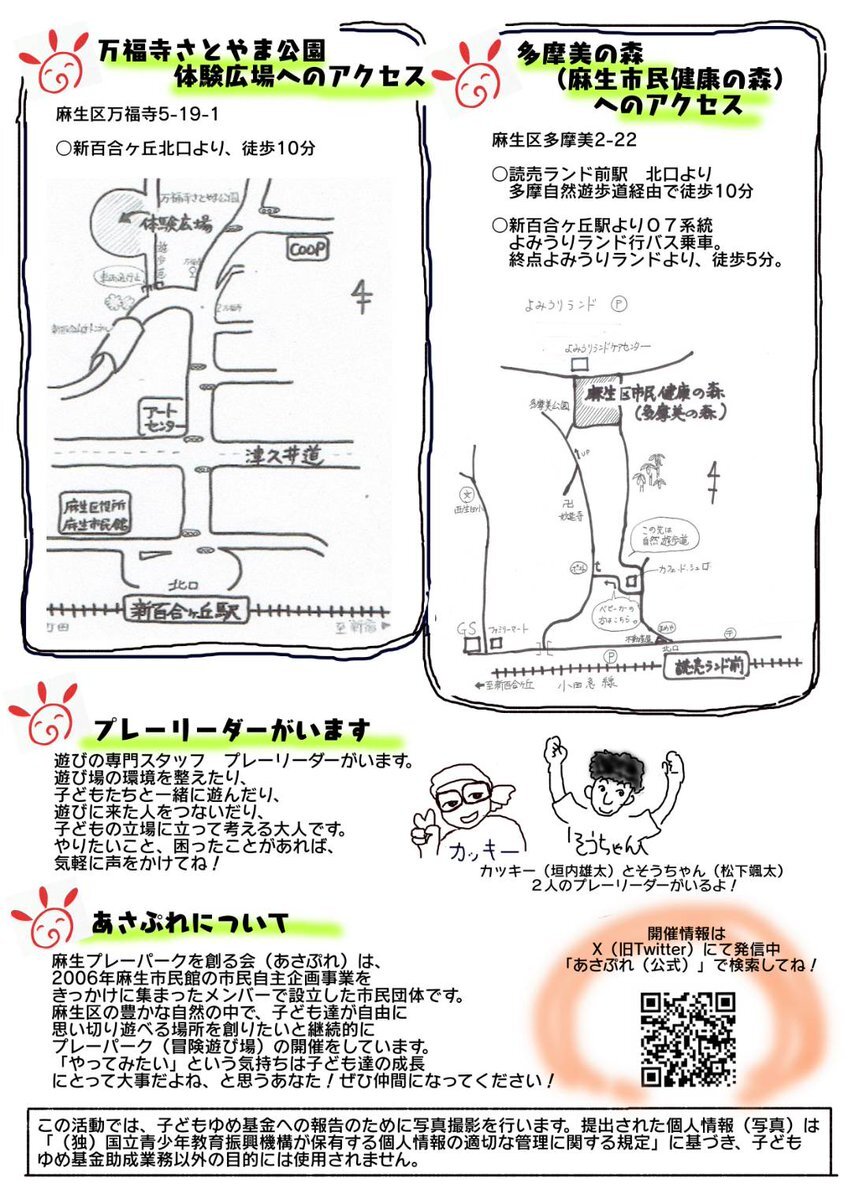 万福寺さとやま公園
体験広場へのアクセス
麻生区万福寺5-19-1
○新百合ヶ丘北口より、徒歩10分
万福寺さとやま公園
体験広場
遊歩道
COOP
アート
センター
津久井道
麻生区役所
麻生市民館
北口
新百合ヶ丘駅
至新宿
多摩美の森
(麻生市民健康の森)
へのアクセス
麻生区多摩美2-22
○読売ランド前駅 北口より
多摩自然遊歩道経由で徒歩10分
○新百合ヶ丘駅より07系統
よみうりランド行バス乗車。
終点よみうりランドより、徒歩5分。
よみうりランド Ⓟ
よみうりランドケアセンター
麻生区市民健康の森
(多摩美の森)
多摩美公園
UP
卍
妙延寺
文
西生田小
この先は
自然遊歩道
カフェ・ド・シュロ
ベビーカーの
方はこちら
GS
ファミリーマート
不動産屋
北口
Ⓟ
読売ランド前
至新百合ヶ丘
小田急線
プレーリーダーがいます
遊びの専門スタッフ プレーリーダーがいます。
遊び場の環境を整えたり、
子どもたちと一緒に遊んだり、
遊びに来た人をつないだり、
子どもの立場に立って考える大人です。
やりたいこと、困ったことがあれば、
気軽に声をかけてね！
カッキー
そうちゃん
カッキー（垣内雄太）とそうちゃん（松下颯太）
２人のプレーリーダーがいるよ！
あさぷれについて
麻生プレーパークを創る会（あさぷれ）は、
2006年麻生市民館の市民自主企画事業を
きっかけに集まったメンバーで設立した市民団体です。
麻生区の豊かな自然の中で、子ども達が自由に
思い切り遊べる場所を創りたいと継続的に
プレーパーク（冒険遊び場）の開催をしています。
「やってみたい」という気持ちは子ども達の成長
にとって大事だよね、と思うあなた！ぜひ仲間になってください！
開催情報は
X（旧Twitter）にて発信中
「あさぷれ（公式）」で検索してね！
この活動では、子どもゆめ基金への報告のために写真撮影を行います。提出された個人情報（写真）は
「（独）国立青少年教育振興機構が保有する個人情報の適切な管理に関する規定」に基づき、子ども
ゆめ基金助成業務以外の目的には使用されません。